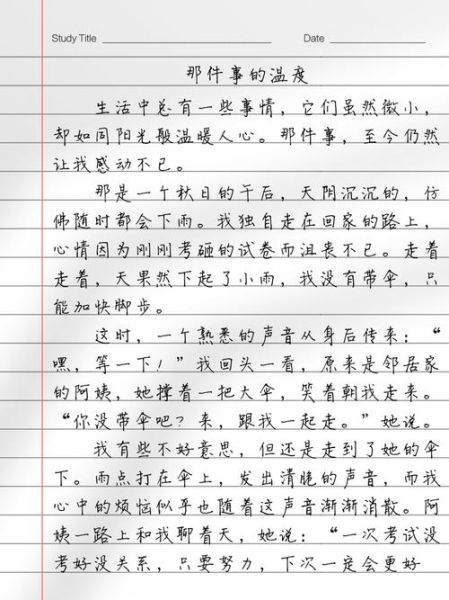 Study Title Date
那件事的温度
生活中总有一些事情，它们虽然微小，
却如同阳光般温暖人心。那件事，至今仍然
让我感动不已。
那是一个秋日的午后，天阴沉沉的，仿
佛随时都会下雨。我独自走在回家的路上，
心情因为刚刚考砸的试卷而沮丧不已。走着
走着，天果然下起了小雨，我没有带伞，只
能加快脚步。
这时，一个熟悉的声音从身后传来：“
嘿，等一下！”我回头一看，原来是邻居家
的阿姨，她撑着一把大伞，笑着朝我走来。
“你没带伞吧？来，跟我一起走。”她说。
我有些不好意思，但还是走到了她的伞
下。雨点打在伞上，发出清脆的声音，而我
心中的烦恼似乎也随着这声音渐渐消散。阿
姨一路上和我聊着天，她说：“一次考试没
考好没关系，只要努力，下次一定会更好